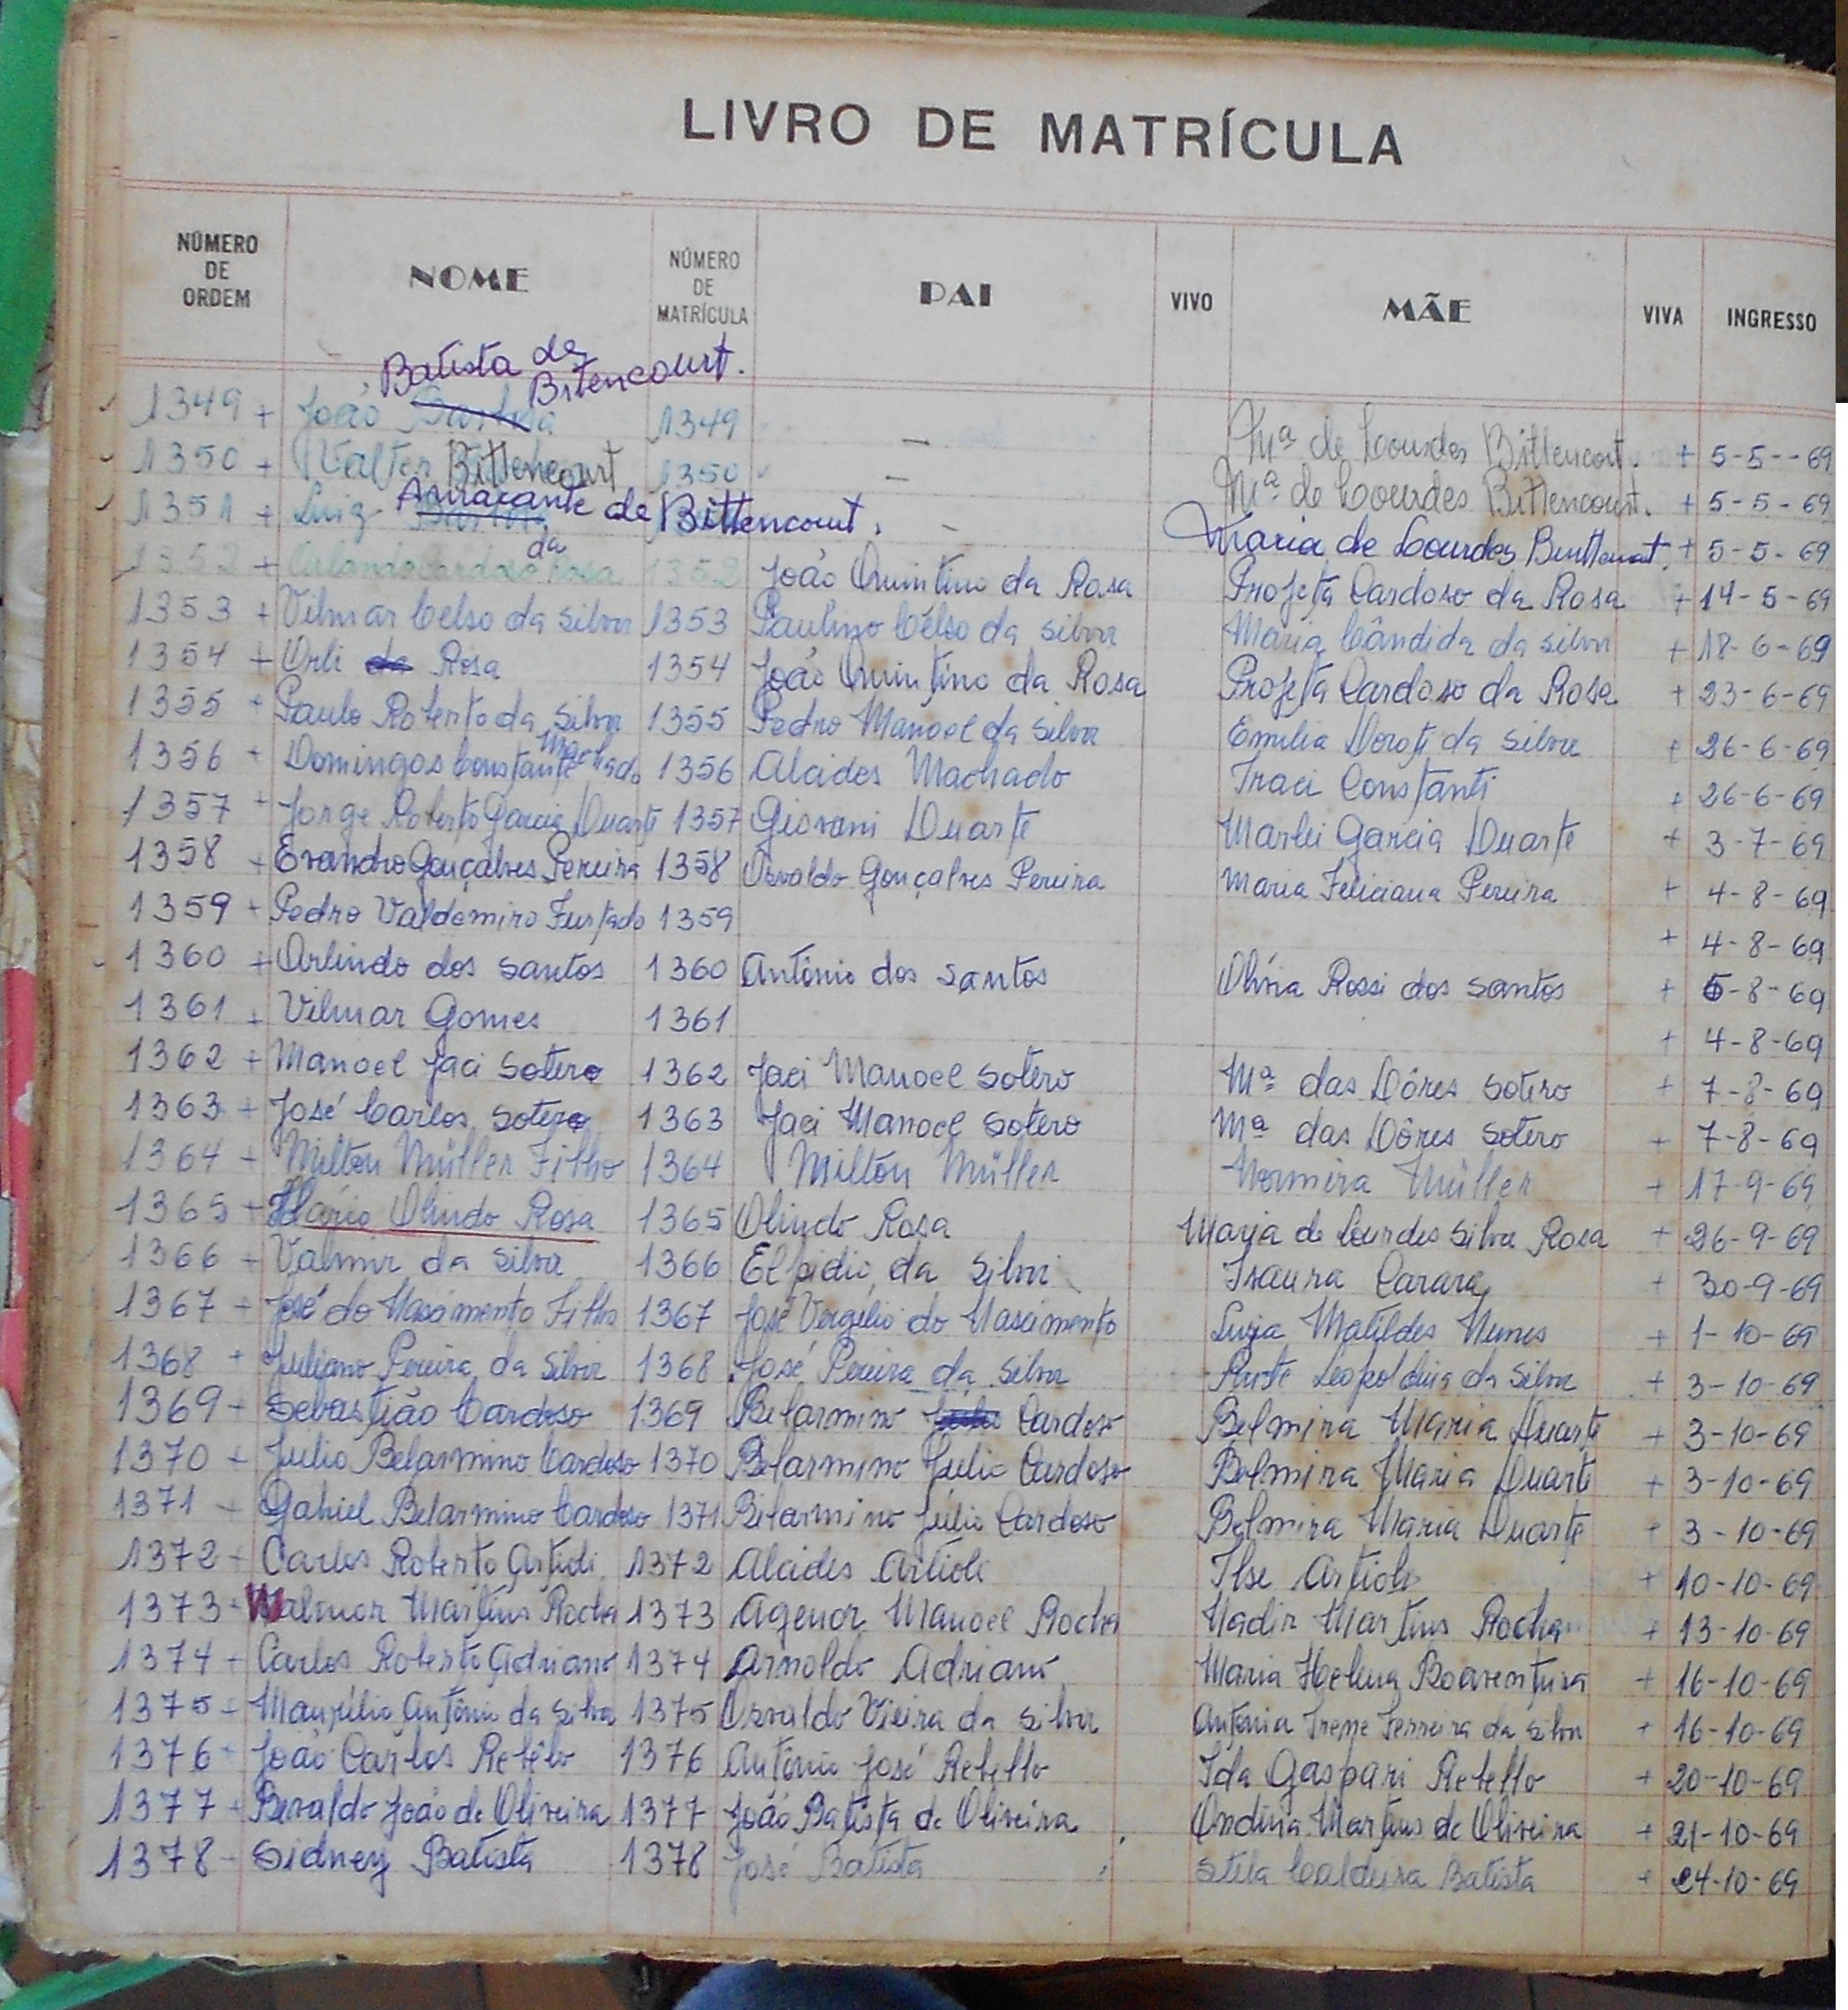 LIVRO DE MATRÍCULA
NÚMERO DE ORDEM NOME NÚMERO DE MATRÍCULA PAI VIVO MÃE VIVA INGRESSO
Batista de Bitencourt.
1349 + João 1349 — Mª de Lourdes Bittencourt. + 5-5--69
1350 + Walter Bittencourt 1350 — Mª de Lourdes Bittencourt. + 5-5-69
1351 + Luiz Amarante de Bittencourt. - Maria de Lourdes + 5-5-69
1352 + Orlando Cardoso da Rosa 1352 João Quintino da Rosa Projeta Cardoso da Rosa + 14-5-69
1353 + Vilmar Celso da Silva 1353 Paulino Célso da Silva Maria Cândida da Silva + 18-6-69
1354 + Orli da Rosa 1354 João Quintino da Rosa Projeta Cardoso da Rosa + 23-6-69
1355 + Paulo Roberto da Silva 1355 Pedro Manoel da Silva Emilia Doroti da Silva + 26-6-69
1356 + Domingos Constante Machado 1356 Alcides Machado Iraci Constanti + 26-6-69
1357 + Jorge Roberto Garcia Duarte 1357 Giovani Duarte Marlei Garcia Duarte + 3-7-69
1358 + Evandro Gonçalves Pereira 1358 Osvaldo Gonçalves Pereira Maria Feliciana Pereira + 4-8-69
1359 + Pedro Valdemiro Furtado 1359 + 4-8-69
1360 + Arlindo dos Santos 1360 Antônio dos Santos Olívia Rossi dos Santos + 5-8-69
1361 + Vilmar Gomes 1361 + 4-8-69
1362 + Manoel Jaci Sotero 1362 Jaci Manoel Sotero Mª das Dôres Sotero + 7-8-69
1363 + José Carlos Sotero 1363 Jaci Manoel Sotero Mª das Dôres Sotero + 7-8-69
1364 + Milton Müller Filho 1364 Milton Müller Normira Müller + 17-9-69
1365 + Olindo Rosa 1365 Olindo Rosa Maria de Lourdes Silva Rosa + 26-9-69
1366 + Valmir da Silva 1366 Elpidio da Silva Isaura Carara + 30-9-69
1367 + José do Nascimento Filho 1367 José Vergílio do Nascimento Luzia Matildes Nunes + 1-10-69
1368 + Juliano Pereira da Silva 1368 José Pereira da Silva Leopoldina da Silva + 3-10-69
1369 + Sebastião Cardoso 1369 Belarmino Cardoso Belmira Maria Duarte + 3-10-69
1370 + Julio Belarmino Cardoso 1370 Belarmino Júlio Cardoso Belmira Maria Duarte + 3-10-69
1371 + Gabriel Belarmino Cardoso 1371 Belarmino Júlio Cardoso Belmira Maria Duarte + 3-10-69
1372 + Carlos Roberto Artioli 1372 Alcides Artioli Ilse Artioli + 10-10-69
1373 + Walmor Martins Rocha 1373 Agenor Manoel Rocha Nadir Martins Rocha + 13-10-69
1374 + Carlos Roberto Adriano 1374 Arnoldo Adriano Maria Helena Boaventura + 16-10-69
1375 + Maurélio Antônio da Silva 1375 Osvaldo Vieira da Silva Antonia Irene Ferreira da Silva + 16-10-69
1376 + João Carlos Rebêlo 1376 Antônio José Rebello Ida Gaspari Rebello + 20-10-69
1377 + João de Oliveira 1377 João Batista de Oliveira Ondina Martins de Oliveira + 21-10-69
1378 - Sidney Batista 1378 José Batista Stela Caldeira Batista + 24-10-69